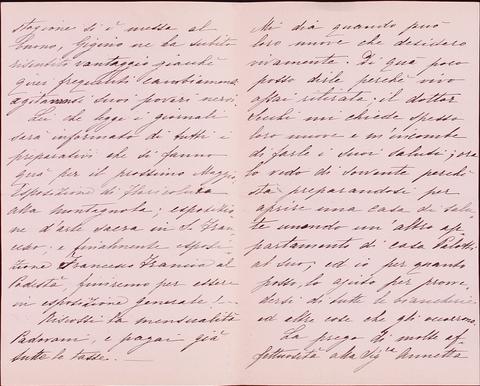 stagione si è messa al
buono, Gigino ne ha subito
risentito vantaggio giacchè
quei frequenti cambiamenti
agitavano i suoi poveri nervi
Lei che legge i giornali
sarà informato di tutti i
preparativi che si fanno
quà per il prossimo Maggio
Esposizione di floricoltura
alla montagnola; esposizio
ne d'arte sacra in S. Fran
cesco; e finalmente esposi
zione Francesco Francia al
Podestà, finiremo per essere
in esposizione generale!
Riscossi la mensualità
Padovani, e pagai già
tutte le tasse. —
Mi dia quando può
loro nuove che desidero
vivamente. Di quà poco
posso dirle perchè vivo
assai ritirata; il dottor
mi chiede spesso
loro nuove e m'incombe
di farle i suoi saluti; ora
lo vedo di sovente perchè
stà preparandosi per
aprire una casa di salu
te unendo un altro ap
partamento di casa
al suo, ed io per quanto
posso, lo ajuto per provve
dersi di tutte le biancherie
ed altre cose che gli occorrono.
La prego di molte af
fettuosità alla Sig.ra Annetta